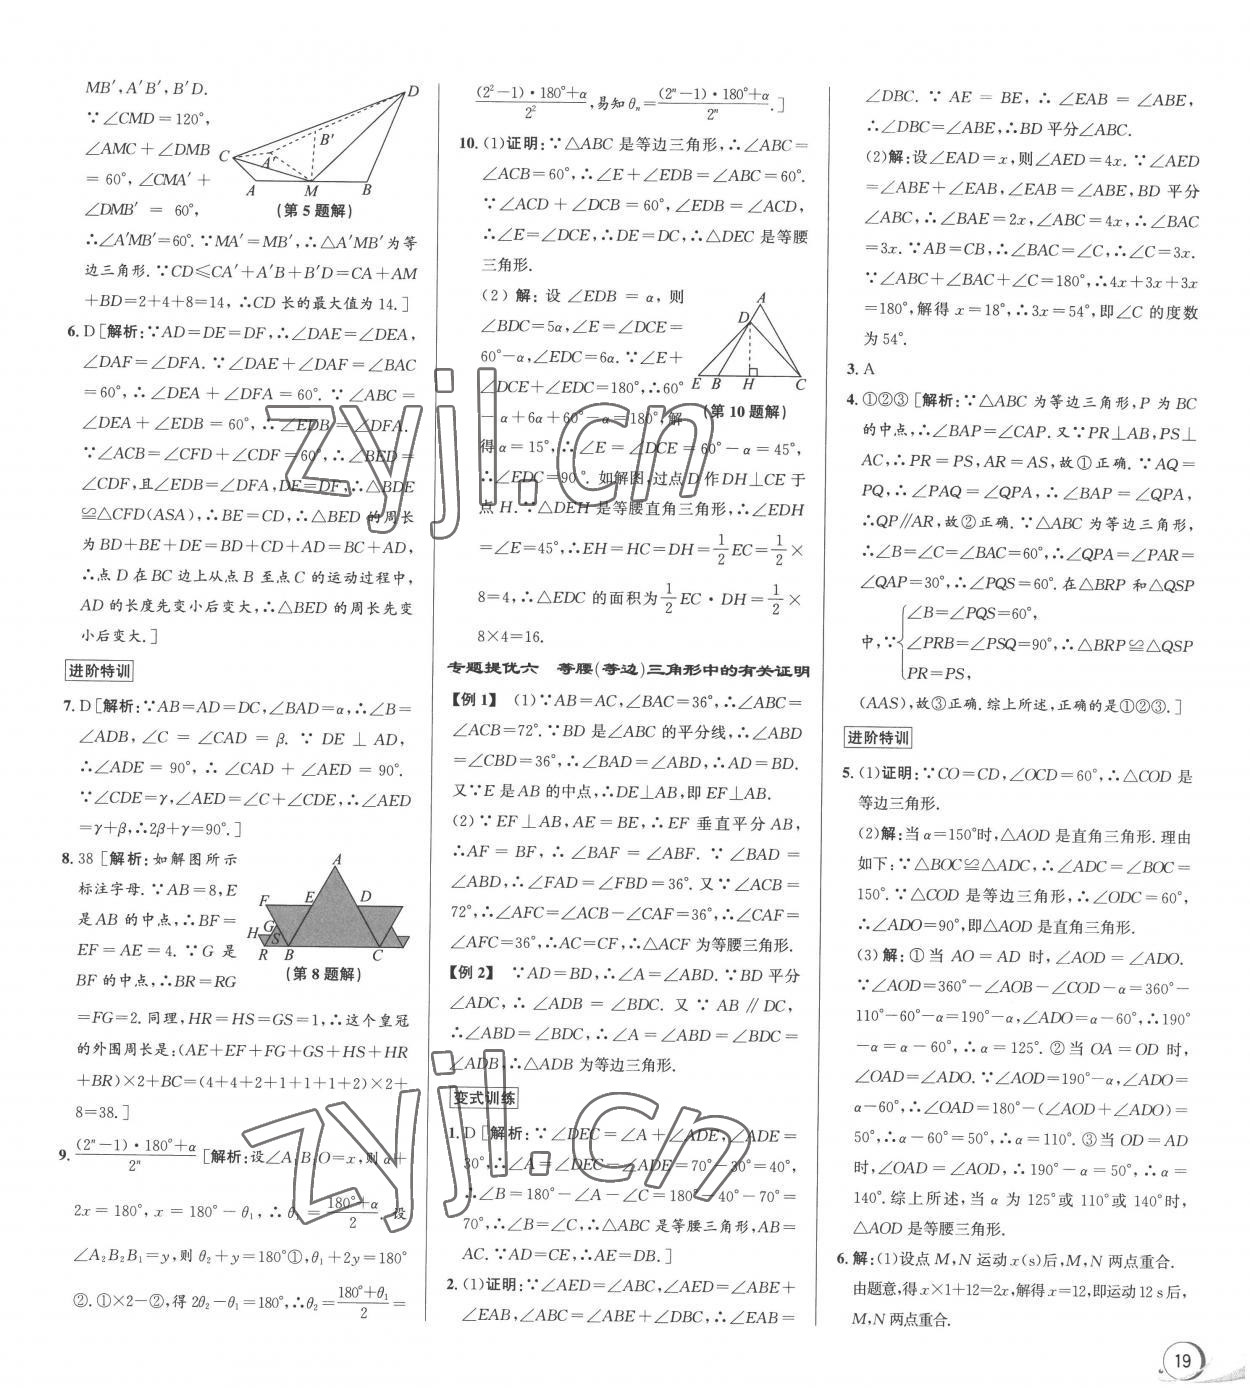 MB′,A′B′,B′D.
∵∠CMD=120°,
∠AMC+∠DMB
=60°,∠CMA′+
∠DMB′=60°,
D
B′
C
A′
A
M
B
(第5题解)
∴∠A′MB′=60°.∵MA′=MB′,∴△A′MB′为等
边三角形.∵CD≤CA′+A′B+B′D=CA+AM
+BD=2+4+8=14,∴CD长的最大值为14.]
6. D [解析:∵AD=DE=DF,∴∠DAE=∠DEA,
∠DAF=∠DFA.∵∠DAE+∠DAF=∠BAC
=60°,∴∠DEA+∠DFA=60°.∵∠ABC=
∠DEA+∠EDB=60°,∴∠EDB=∠DFA.
∵∠ACB=∠CFD+∠CDF=60°,∴∠BED=
∠CDF,且∠EDB=∠DFA,DE=DF,∴△BDE
≌△CFD(ASA),∴BE=CD,∴△BED的周长
为BD+BE+DE=BD+CD+AD=BC+AD,
∴点D在BC边上从点B至点C的运动过程中,
AD的长度先变小后变大,∴△BED的周长先变
小后变大.]
进阶特训
7. D [解析:∵AB=AD=DC,∠BAD=α,∴∠B=
∠ADB,∠C=∠CAD=β.∵DE⊥AD,
∴∠ADE=90°,∴∠CAD+∠AED=90°.
∵∠CDE=γ,∠AED=∠C+∠CDE,∴∠AED
=γ+β,∴2β+γ=90°.]
8. 38 [解析:如解图所示
标注字母.∵AB=8,E
是AB的中点,∴BF=
EF=AE=4.∵G是
BF的中点,∴BR=RG
A
F
E
D
G
H
S
R
B
C
(第8题解)
=FG=2.同理,HR=HS=GS=1,∴这个皇冠
的外围周长是:(AE+EF+FG+GS+HS+HR
+BR)×2+BC=(4+4+2+1+1+1+2)×2+
8=38.]
9. (2ⁿ−1)·180°+α/2ⁿ [解析:设∠A₁B₁O=x,则α+
2x=180°,x=180°−θ₁,∴θ₁=180°+α/2.设
∠A₂B₂B₁=y,则θ₂+y=180°①,θ₁+2y=180°
②.①×2−②,得2θ₂−θ₁=180°,∴θ₂=180°+θ₁/2=
(2²−1)·180°+α/2²,易知θₙ=(2ⁿ−1)·180°+α/2ⁿ.]
10. (1)证明:∵△ABC是等边三角形,∴∠ABC=
∠ACB=60°,∴∠E+∠EDB=∠ABC=60°.
∵∠ACD+∠DCB=60°,∠EDB=∠ACD,
∴∠E=∠DCE,∴DE=DC,∴△DEC是等腰
三角形.
(2)解:设∠EDB=α,则
∠BDC=5α,∠E=∠DCE=
60°−α,∠EDC=6α.∵∠E+
∠DCE+∠EDC=180°,∴60°
−α+6α+60°−α=180°,解
A
D
E
B
H
C
(第10题解)
得α=15°,∴∠E=∠DCE=60°−α=45°,
∴∠EDC=90°.如解图,过点D作DH⊥CE于
点H.∵△DEH是等腰直角三角形,∴∠EDH
=∠E=45°,∴EH=HC=DH=1/2EC=1/2×
8=4,∴△EDC的面积为1/2EC·DH=1/2×
8×4=16.
专题提优六 等腰(等边)三角形中的有关证明
【例1】 (1)∵AB=AC,∠BAC=36°,∴∠ABC=
∠ACB=72°.∵BD是∠ABC的平分线,∴∠ABD
=∠CBD=36°,∴∠BAD=∠ABD,∴AD=BD.
又∵E是AB的中点,∴DE⊥AB,即EF⊥AB.
(2)∵EF⊥AB,AE=BE,∴EF垂直平分AB,
∴AF=BF,∴∠BAF=∠ABF.∵∠BAD=
∠ABD,∴∠FAD=∠FBD=36°.又∵∠ACB=
72°,∴∠AFC=∠ACB−∠CAF=36°,∴∠CAF=
∠AFC=36°,∴AC=CF,∴△ACF为等腰三角形.
【例2】 ∵AD=BD,∴∠A=∠ABD.∵BD平分
∠ADC,∴∠ADB=∠BDC.又∵AB∥DC,
∴∠ABD=∠BDC,∴∠A=∠ABD=∠BDC=
∠ADB,∴△ADB为等边三角形.
变式训练
1. D [解析:∵∠DEC=∠A+∠ADE,∠ADE=
30°,∴∠A=∠DEC−∠ADE=70°−30°=40°,
∴∠B=180°−∠A−∠C=180°−40°−70°=
70°,∴∠B=∠C,∴△ABC是等腰三角形,AB=
AC.∵AD=CE,∴AE=DB.]
2. (1)证明:∵∠AED=∠ABC,∠AED=∠ABE+
∠EAB,∠ABC=∠ABE+∠DBC,∴∠EAB=
∠DBC.∵AE=BE,∴∠EAB=∠ABE,
∴∠DBC=∠ABE,∴BD平分∠ABC.
(2)解:设∠EAD=x,则∠AED=4x.∵∠AED
=∠ABE+∠EAB,∠EAB=∠ABE,BD平分
∠ABC,∴∠BAE=2x,∠ABC=4x,∴∠BAC
=3x.∵AB=CB,∴∠BAC=∠C,∴∠C=3x.
∵∠ABC+∠BAC+∠C=180°,∴4x+3x+3x
=180°,解得x=18°,∴3x=54°,即∠C的度数
为54°.
3. A
4. ①②③ [解析:∵△ABC为等边三角形,P为BC
的中点,∴∠BAP=∠CAP.又∵PR⊥AB,PS⊥
AC,∴PR=PS,AR=AS,故①正确.∵AQ=
PQ,∴∠PAQ=∠QPA,∴∠BAP=∠QPA,
∴QP∥AR,故②正确.∵△ABC为等边三角形,
∴∠B=∠C=∠BAC=60°,∴∠QPA=∠PAR=
∠QAP=30°,∴∠PQS=60°.在△BRP和△QSP
∠B=∠PQS=60°,
中,∵{∠PRB=∠PSQ=90°,∴△BRP≌△QSP
PR=PS,
(AAS),故③正确.综上所述,正确的是①②③.]
进阶特训
5. (1)证明:∵CO=CD,∠OCD=60°,∴△COD是
等边三角形.
(2)解:当α=150°时,△AOD是直角三角形.理由
如下:∵△BOC≌△ADC,∴∠ADC=∠BOC=
150°.∵△COD是等边三角形,∴∠ODC=60°,
∴∠ADO=90°,即△AOD是直角三角形.
(3)解:①当AO=AD时,∠AOD=∠ADO.
∵∠AOD=360°−∠AOB−∠COD−α=360°−
110°−60°−α=190°−α,∠ADO=α−60°,∴190°
−α=α−60°,∴α=125°.②当OA=OD时,
∠OAD=∠ADO.∵∠AOD=190°−α,∠ADO=
α−60°,∴∠OAD=180°−(∠AOD+∠ADO)=
50°,∴α−60°=50°,∴α=110°.③当OD=AD
时,∠OAD=∠AOD,∴190°−α=50°,∴α=
140°.综上所述,当α为125°或110°或140°时,
△AOD是等腰三角形.
6. 解:(1)设点M,N运动x(s)后,M,N两点重合.
由题意,得x×1+12=2x,解得x=12,即运动12 s后,
M,N两点重合.
zyjl.cn
zyjl.cn
19